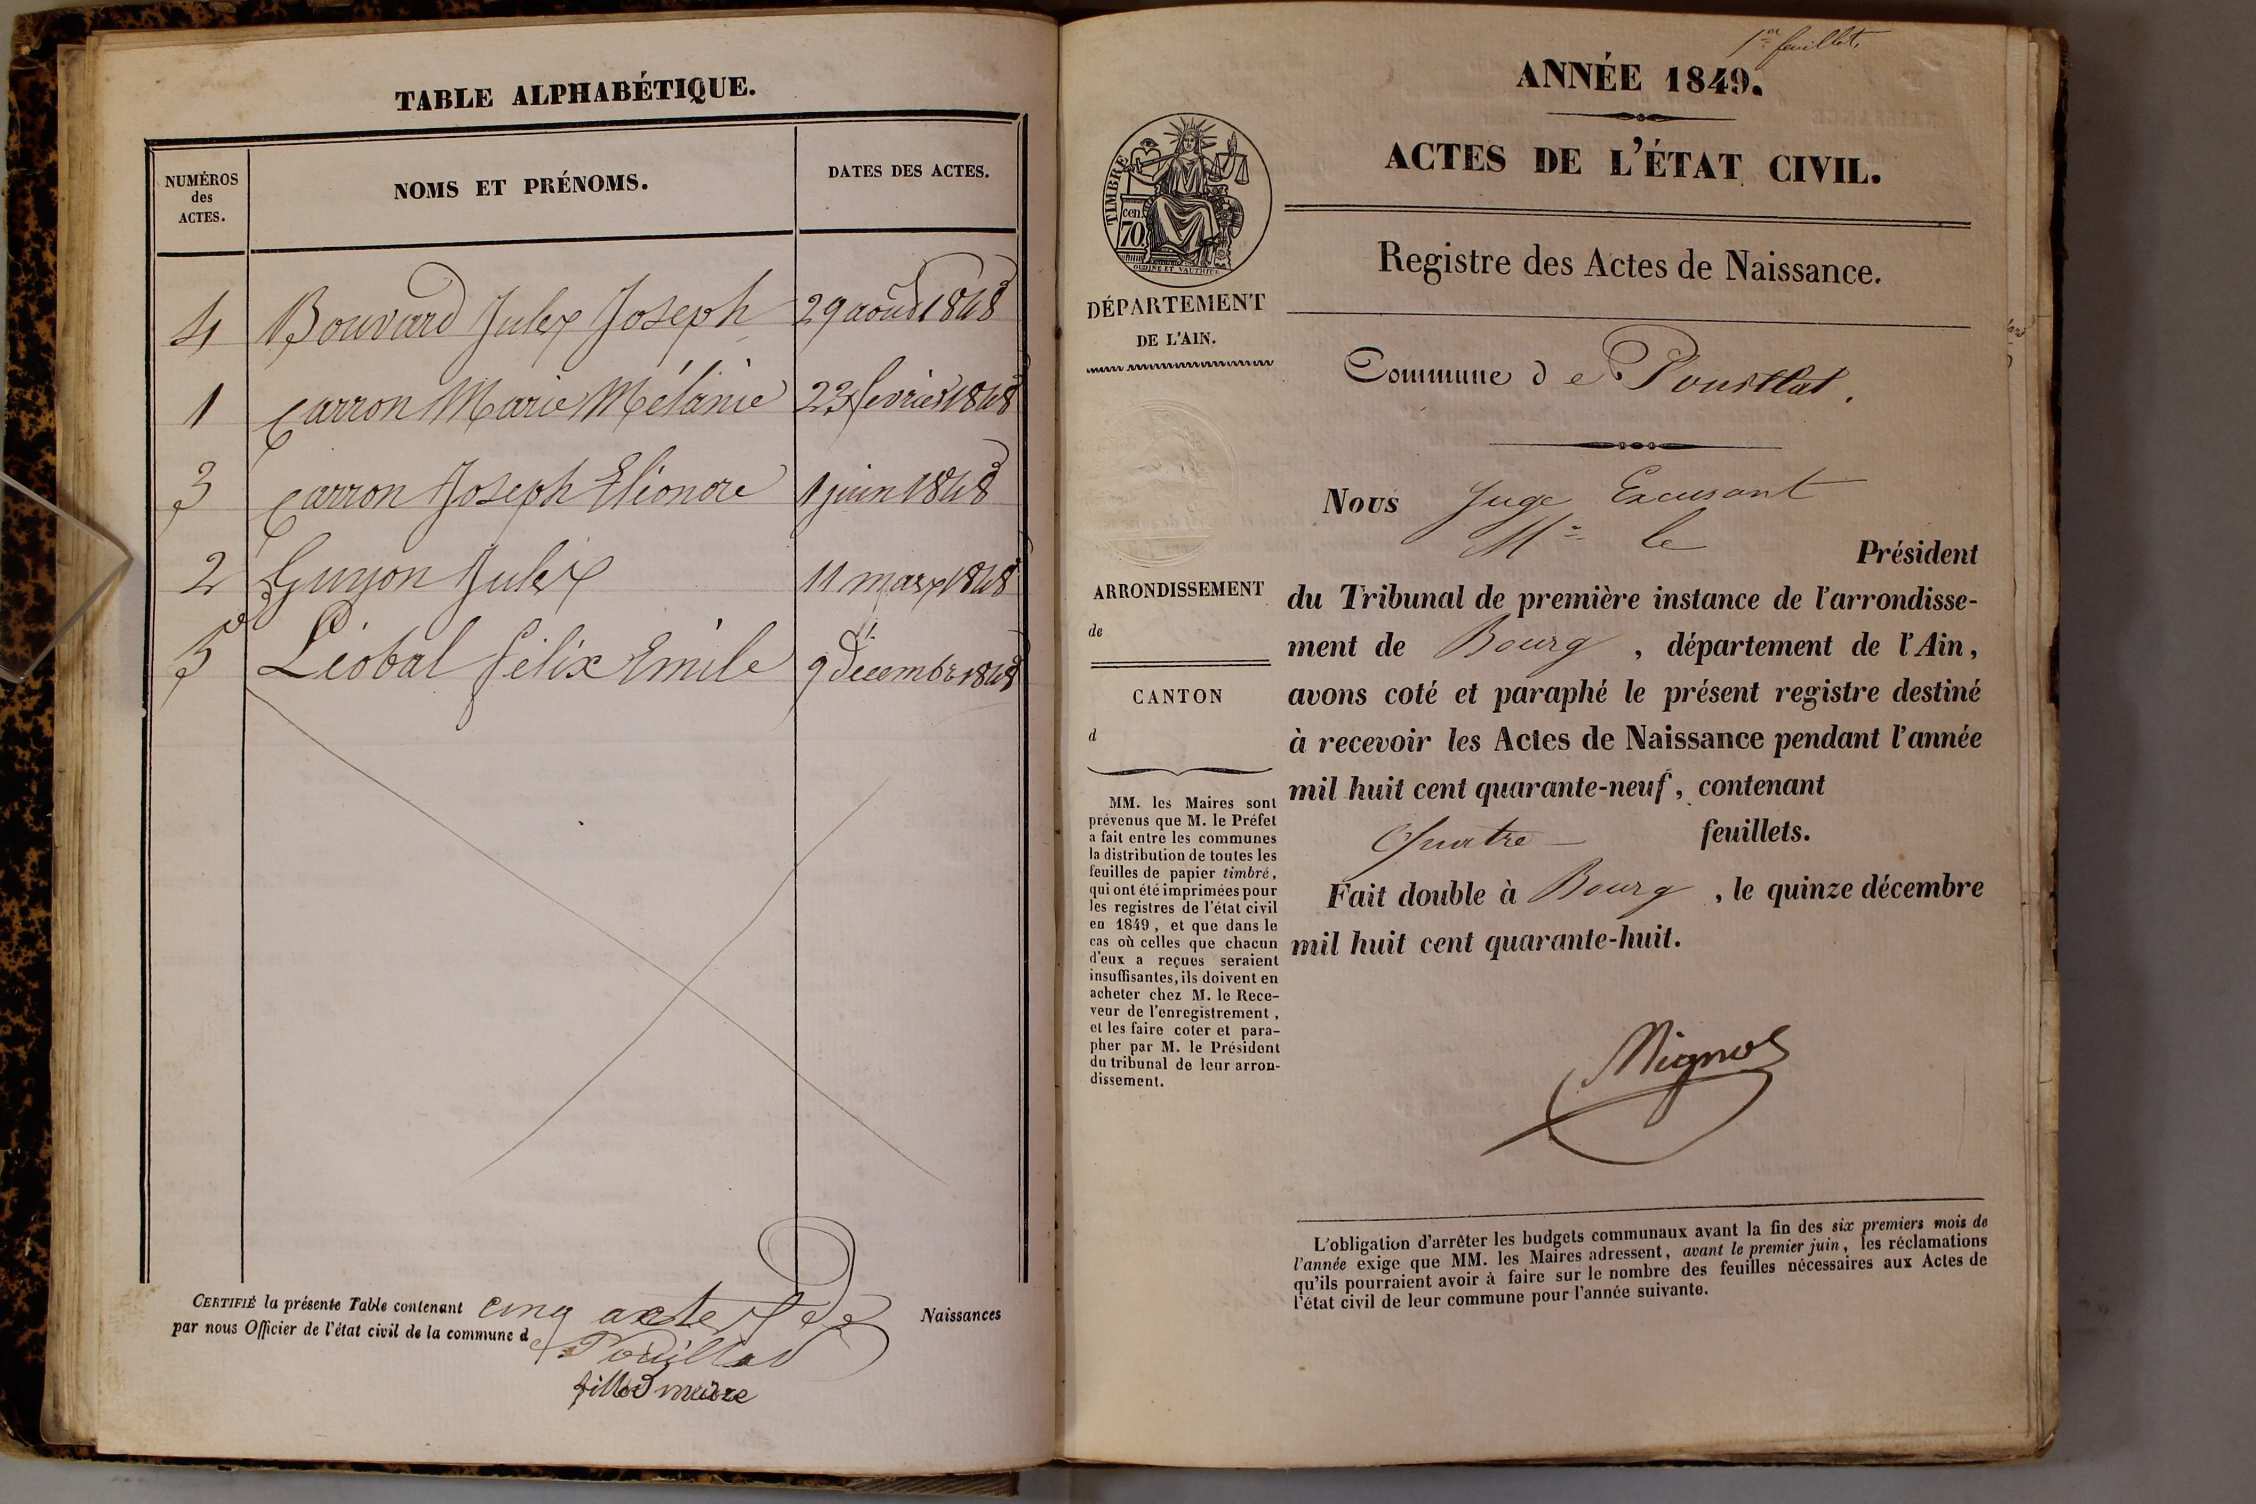 TABLE ALPHABÉTIQUE.
NUMÉROS
des
ACTES.
NOMS ET PRÉNOMS.
DATES DES ACTES.
4 Bouvard Jules Joseph 29 août 1848
1 Carron Marie Mélanie 23 fevrier 1848
3 Carron Joseph Eléonore 1 juin 1848
2 Guyon Jules 11 mars 1848
5 Léobal félix Emile 9 décembre 1848
CERTIFIÉ la présente Table contenant cinq actes de Naissances
par nous Officier de l'état civil de la commune de Pouillat
fillod maire
1er feuillet.
ANNÉE 1849.
ACTES DE L'ÉTAT CIVIL.
Registre des Actes de Naissance.
TIMBRE
cen.
70
OUDINE ET VAUTHIER
DÉPARTEMENT
DE L'AIN.
Commune de Pouillat.
Nous Juge Excusant
Mr le Président
du Tribunal de première instance de l'arrondisse-
ment de Bourg, département de l'Ain,
avons coté et paraphé le présent registre destiné
à recevoir les Actes de Naissance pendant l'année
mil huit cent quarante-neuf, contenant
Quatre feuillets.
Fait double à Bourg, le quinze décembre
mil huit cent quarante-huit.
ARRONDISSEMENT
de
CANTON
d
MM. les Maires sont
prévenus que M. le Préfet
a fait entre les communes
la distribution de toutes les
feuilles de papier timbré,
qui ont été imprimées pour
les registres de l'état civil
en 1849, et que dans le
cas où celles que chacun
d'eux a reçues seraient
insuffisantes, ils doivent en
acheter chez M. le Rece-
veur de l'enregistrement,
et les faire coter et para-
pher par M. le Président
du tribunal de leur arron-
dissement.
L'obligation d'arrêter les budgets communaux avant la fin des six premiers mois de
l'année exige que MM. les Maires adressent, avant le premier juin, les réclamations
qu'ils pourraient avoir à faire sur le nombre des feuilles nécessaires aux Actes de
l'état civil de leur commune pour l'année suivante.